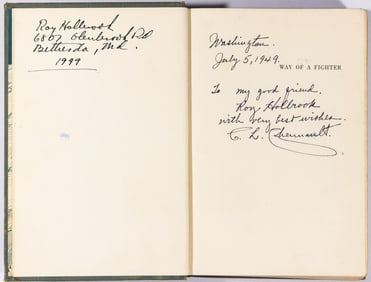 Roy Holbrook
6807 Glenbrook Rd
Bethesda, Md.
1999
Washington.
July 5, 1949.
WAY OF A FIGHTER
To my good friend,
Roy Holbrook
with very best wishes.
C. L. Chennault.